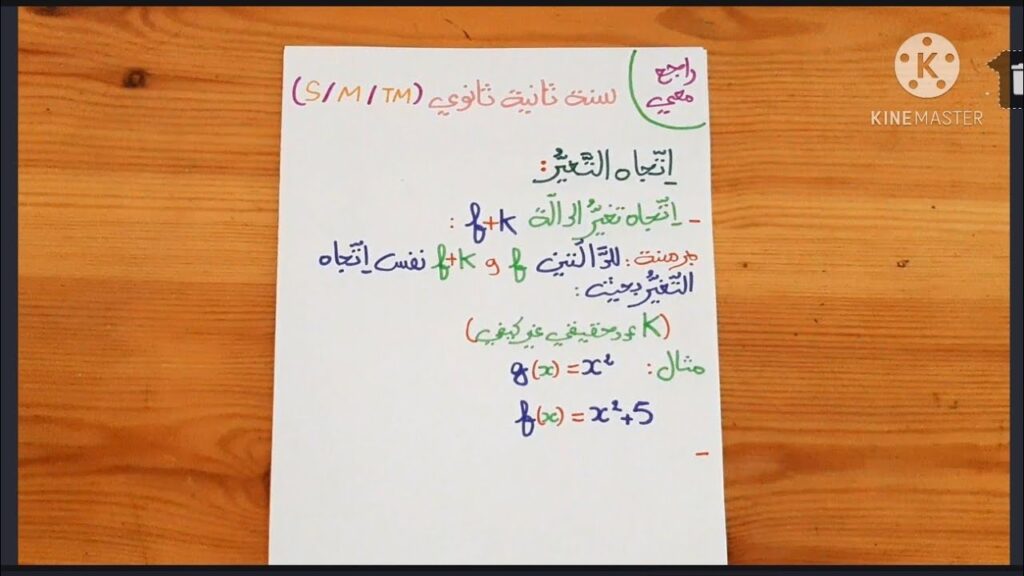 راجع معي
سنة ثانية ثانوي (S/M/TM)
إتّجاه التّغيّر:
- إتّجاه تغيّر الدالّة f+k :
مبرهنة: للدّالّتين f و f+k نفس إتّجاه
التّغيّر بحيث:
(k عدد حقيقي غير كيفي)
مثال: g(x) = x²
f(x) = x²+5
-
K
KINEMASTER